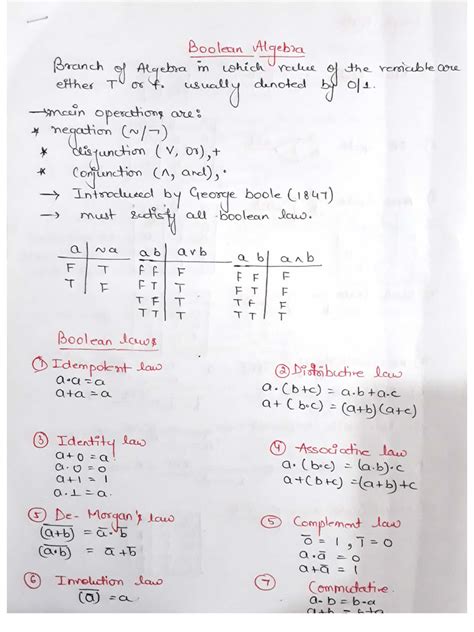 Boolean Algebra
Branch of Algebra in which value of the variable are
either T or f. usually denoted by 0/1.
→ main operations are:
* negation (~/¬)
* disjunction (V, or),+
* Conjunction (Λ, and),·
→ Introduced by George boole (1847)
→ must satisfy all boolean law.
a ~a
F T
T F
a b a v b
F F F
F T T
T F T
T T T
a b a ∧ b
F F F
F T F
T F F
T T T
Boolean laws
① Idempotent law
a·a = a
a+a = a
② Distributive law
a·(b+c) = a.b+a.c
a+(b·c) = (a+b)(a+c)
③ Identity law
a+0 = a
a·0 = 0
a+1 = 1
a.1 = a.
④ Associative law
a·(b·c) = (a.b).c
a+(b+c) = (a+b)+c
⑤ De-Morgan's law
(a+b)̅ = a̅·b̅
(a·b)̅ = a̅+b̅
⑤ Complement law
0̅ = 1, 1̅ = 0
a·a̅ = 0
a+a̅ = 1
⑥ Involution law
(a̅)̅ = a
⑦ Commutative
a·b = b·a
a+b = b+a